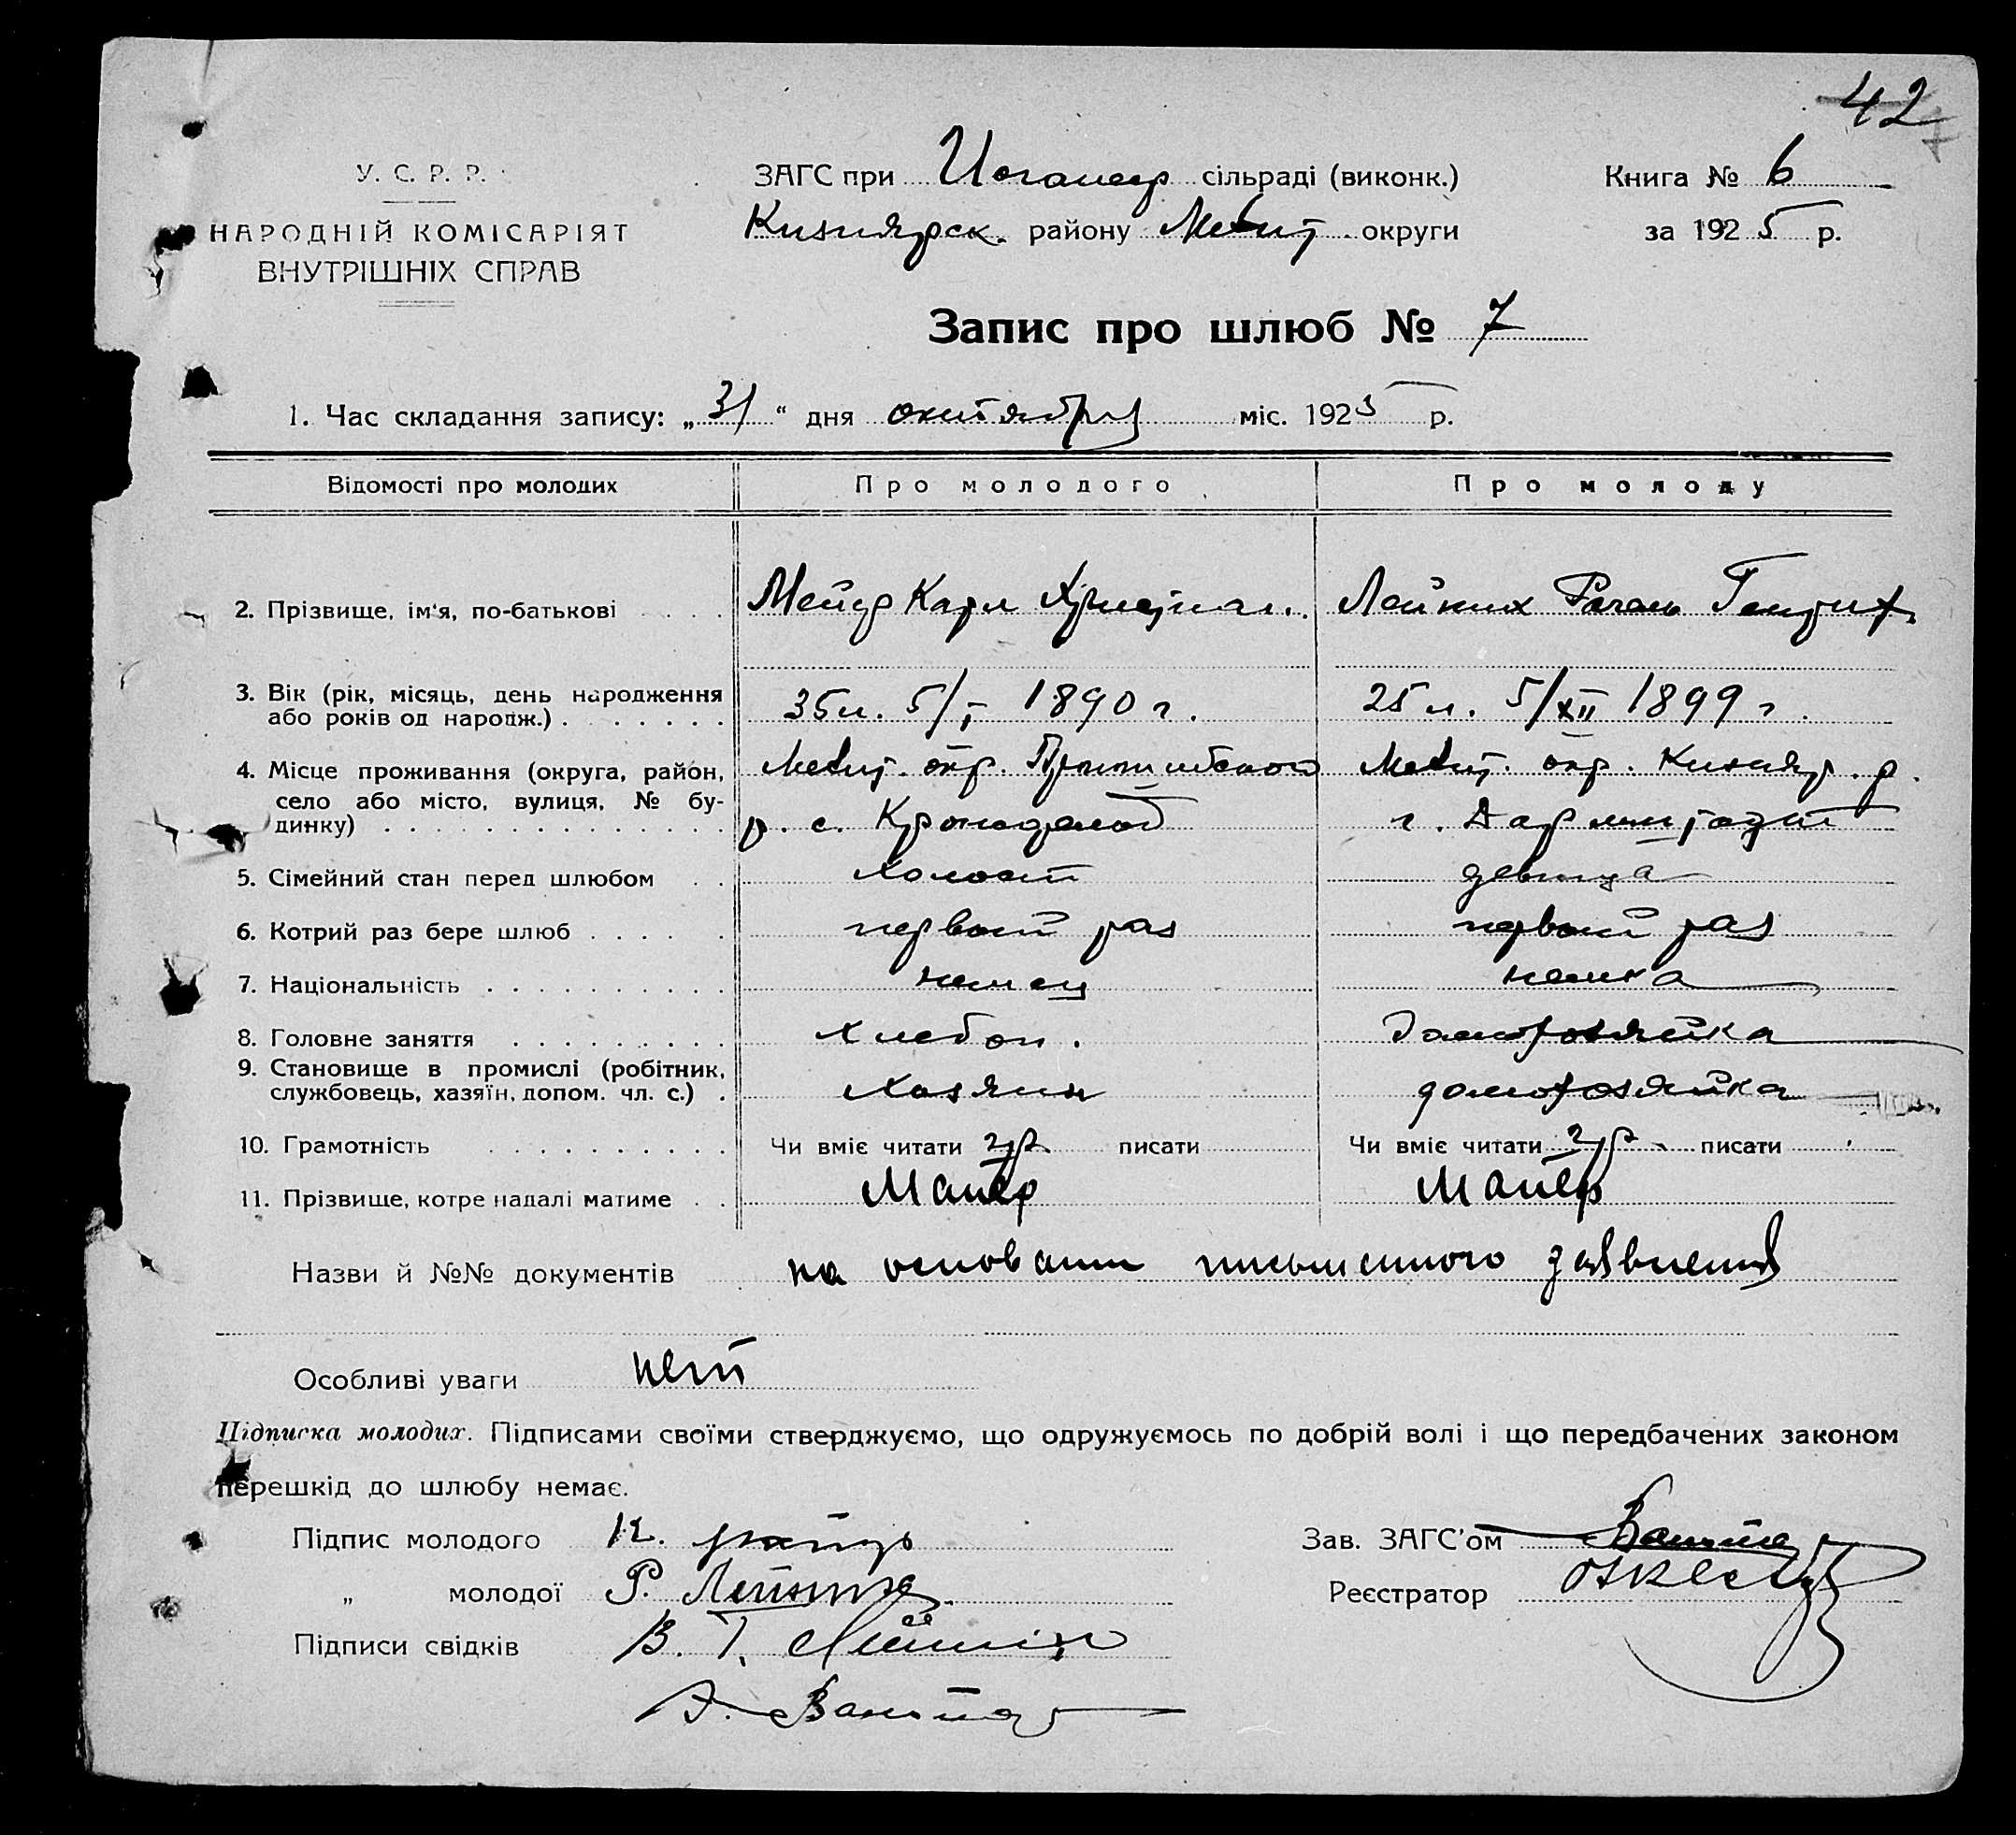 42
У. С. Р. Р.
НАРОДНІЙ КОМІСАРІЯТ
ВНУТРІШНІХ СПРАВ
ЗАГС при сільраді (виконк.)
Кизиярск. району Мелит округи
Книга № 6
за 1925 р.
Запис про шлюб № 7
1. Час складання запису: „31“ дня октября міс. 1925 р.
Відомості про молодих Про молодого Про молоду
2. Прізвище, ім'я, по-батькові . . . . Карл
3. Вік (рік, місяць, день народження або років од народж.) . . . . . . . 35 л. 5/I 1890 г. 25 л. 5/XII 1899 г.
4. Місце проживання (округа, район, Мелит. окр. Пришибского Мелит. окр. Кизияр. р.
село або місто, вулиця, № бу- р. с.
динку) . . . . . . . . . . . . . .
5. Сімейний стан перед шлюбом . . холост девица
6. Котрий раз бере шлюб . . . . . первый раз первый раз
7. Національність . . . . . . . . . . немец немка
8. Головне заняття . . . . . . . . . хлебоп. домохозяйка
9. Становище в промислі (робітник,
службовець, хазяїн, допом. чл. с.) . хозяин домохозяйка
10. Грамотність . . . . . . . . . . Чи вміє читати гр. писати Чи вміє читати гр. писати
11. Прізвище, котре надалі матиме . . Майер Майер
Назви й №№ документів на основании письменного заявления
Особливі уваги нет
Підписка молодих. Підписами своїми стверджуємо, що одружуємось по добрій волі і що передбачених законом
перешкід до шлюбу немає.
Підпис молодого К.
„ молодої Р.
Підписи свідків В. Г.
Зав. ЗАГС'ом
Реєстратор